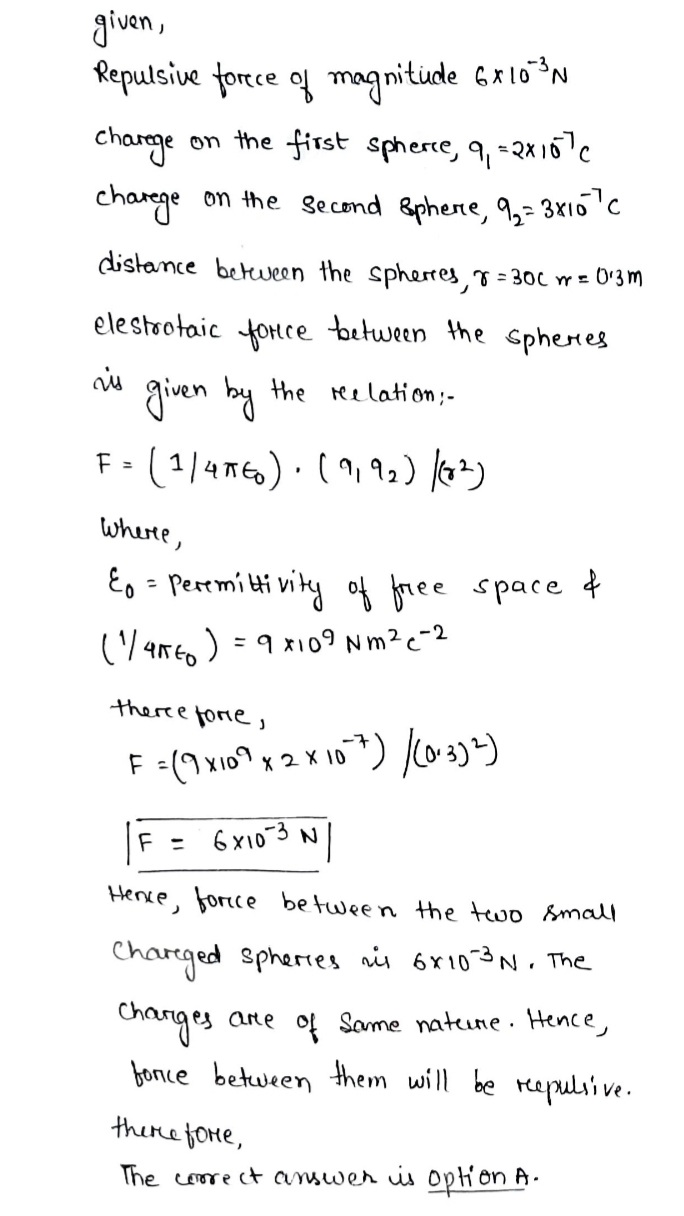 given,
Repulsive force of magnitude 6×10⁻³N
charge on the first sphere, q₁ = 2×10⁻⁷c
charge on the second sphere, q₂ = 3×10⁻⁷c
distance between the spheres, r = 30cm = 0.3m
elestrotaic force between the spheres
is given by the relation:-
F = (1/4πε₀) · (q₁q₂) /(r²)
where,
ε₀ = Permittivity of free space &
(1/4πε₀) = 9×10⁹ Nm²c⁻²
therefore,
F = (9×10⁹ × 2×10⁻⁷) /(0.3)²)
F = 6×10⁻³ N
Hence, force between the two small
charged spheres is 6×10⁻³N. The
charges are of same nature. Hence,
force between them will be repulsive.
therefore,
The correct answer is option A.